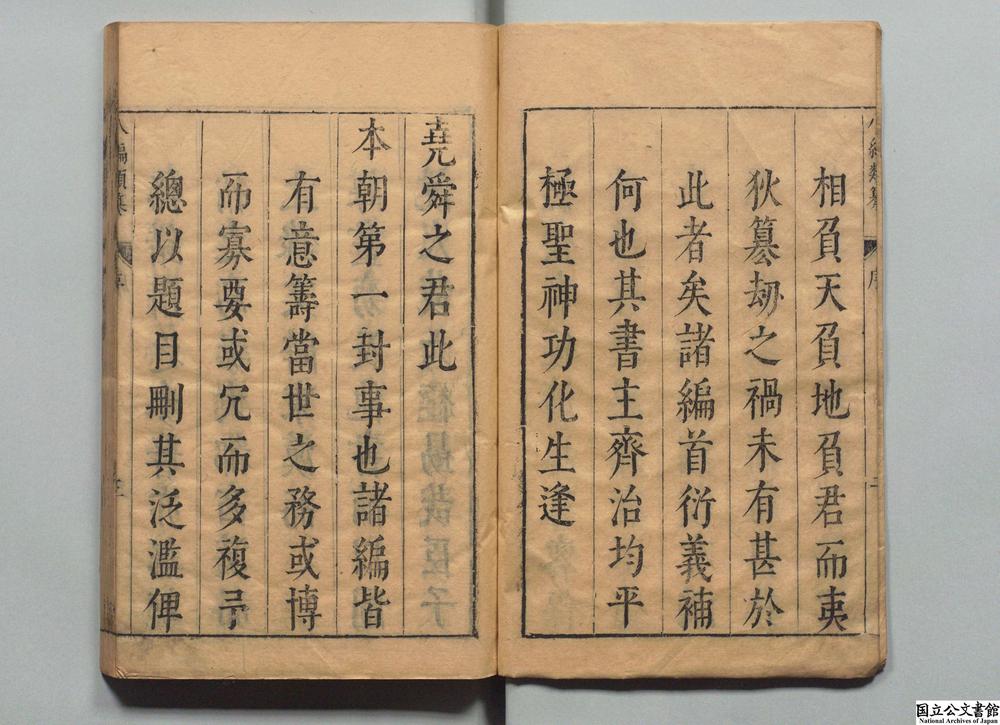 相負天負地負君而夷
狄篡劫之禍未有甚於
此者矣諸編首衍義補
何也其書主齊治均平
極聖神功化生逢
堯舜之君此
本朝第一封事也諸編皆
有意籌當世之務或博
而寡要或冗而多複予
總以題目刪其泛濫俾
八編類纂
序
国立公文書館
National Archives of Japan